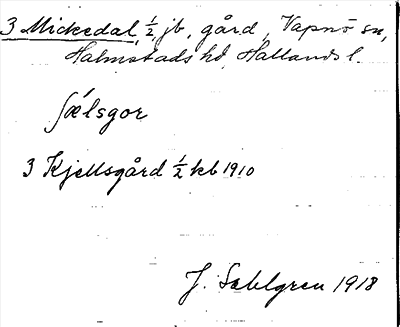 3 Mickedal, 1/2 jb, gård, Vapnö sn,
Halmstads hd, Hallands l.
ʃælsgor
3 Kjellsgård 1/2 kb 1910
J. Sahlgren 1918